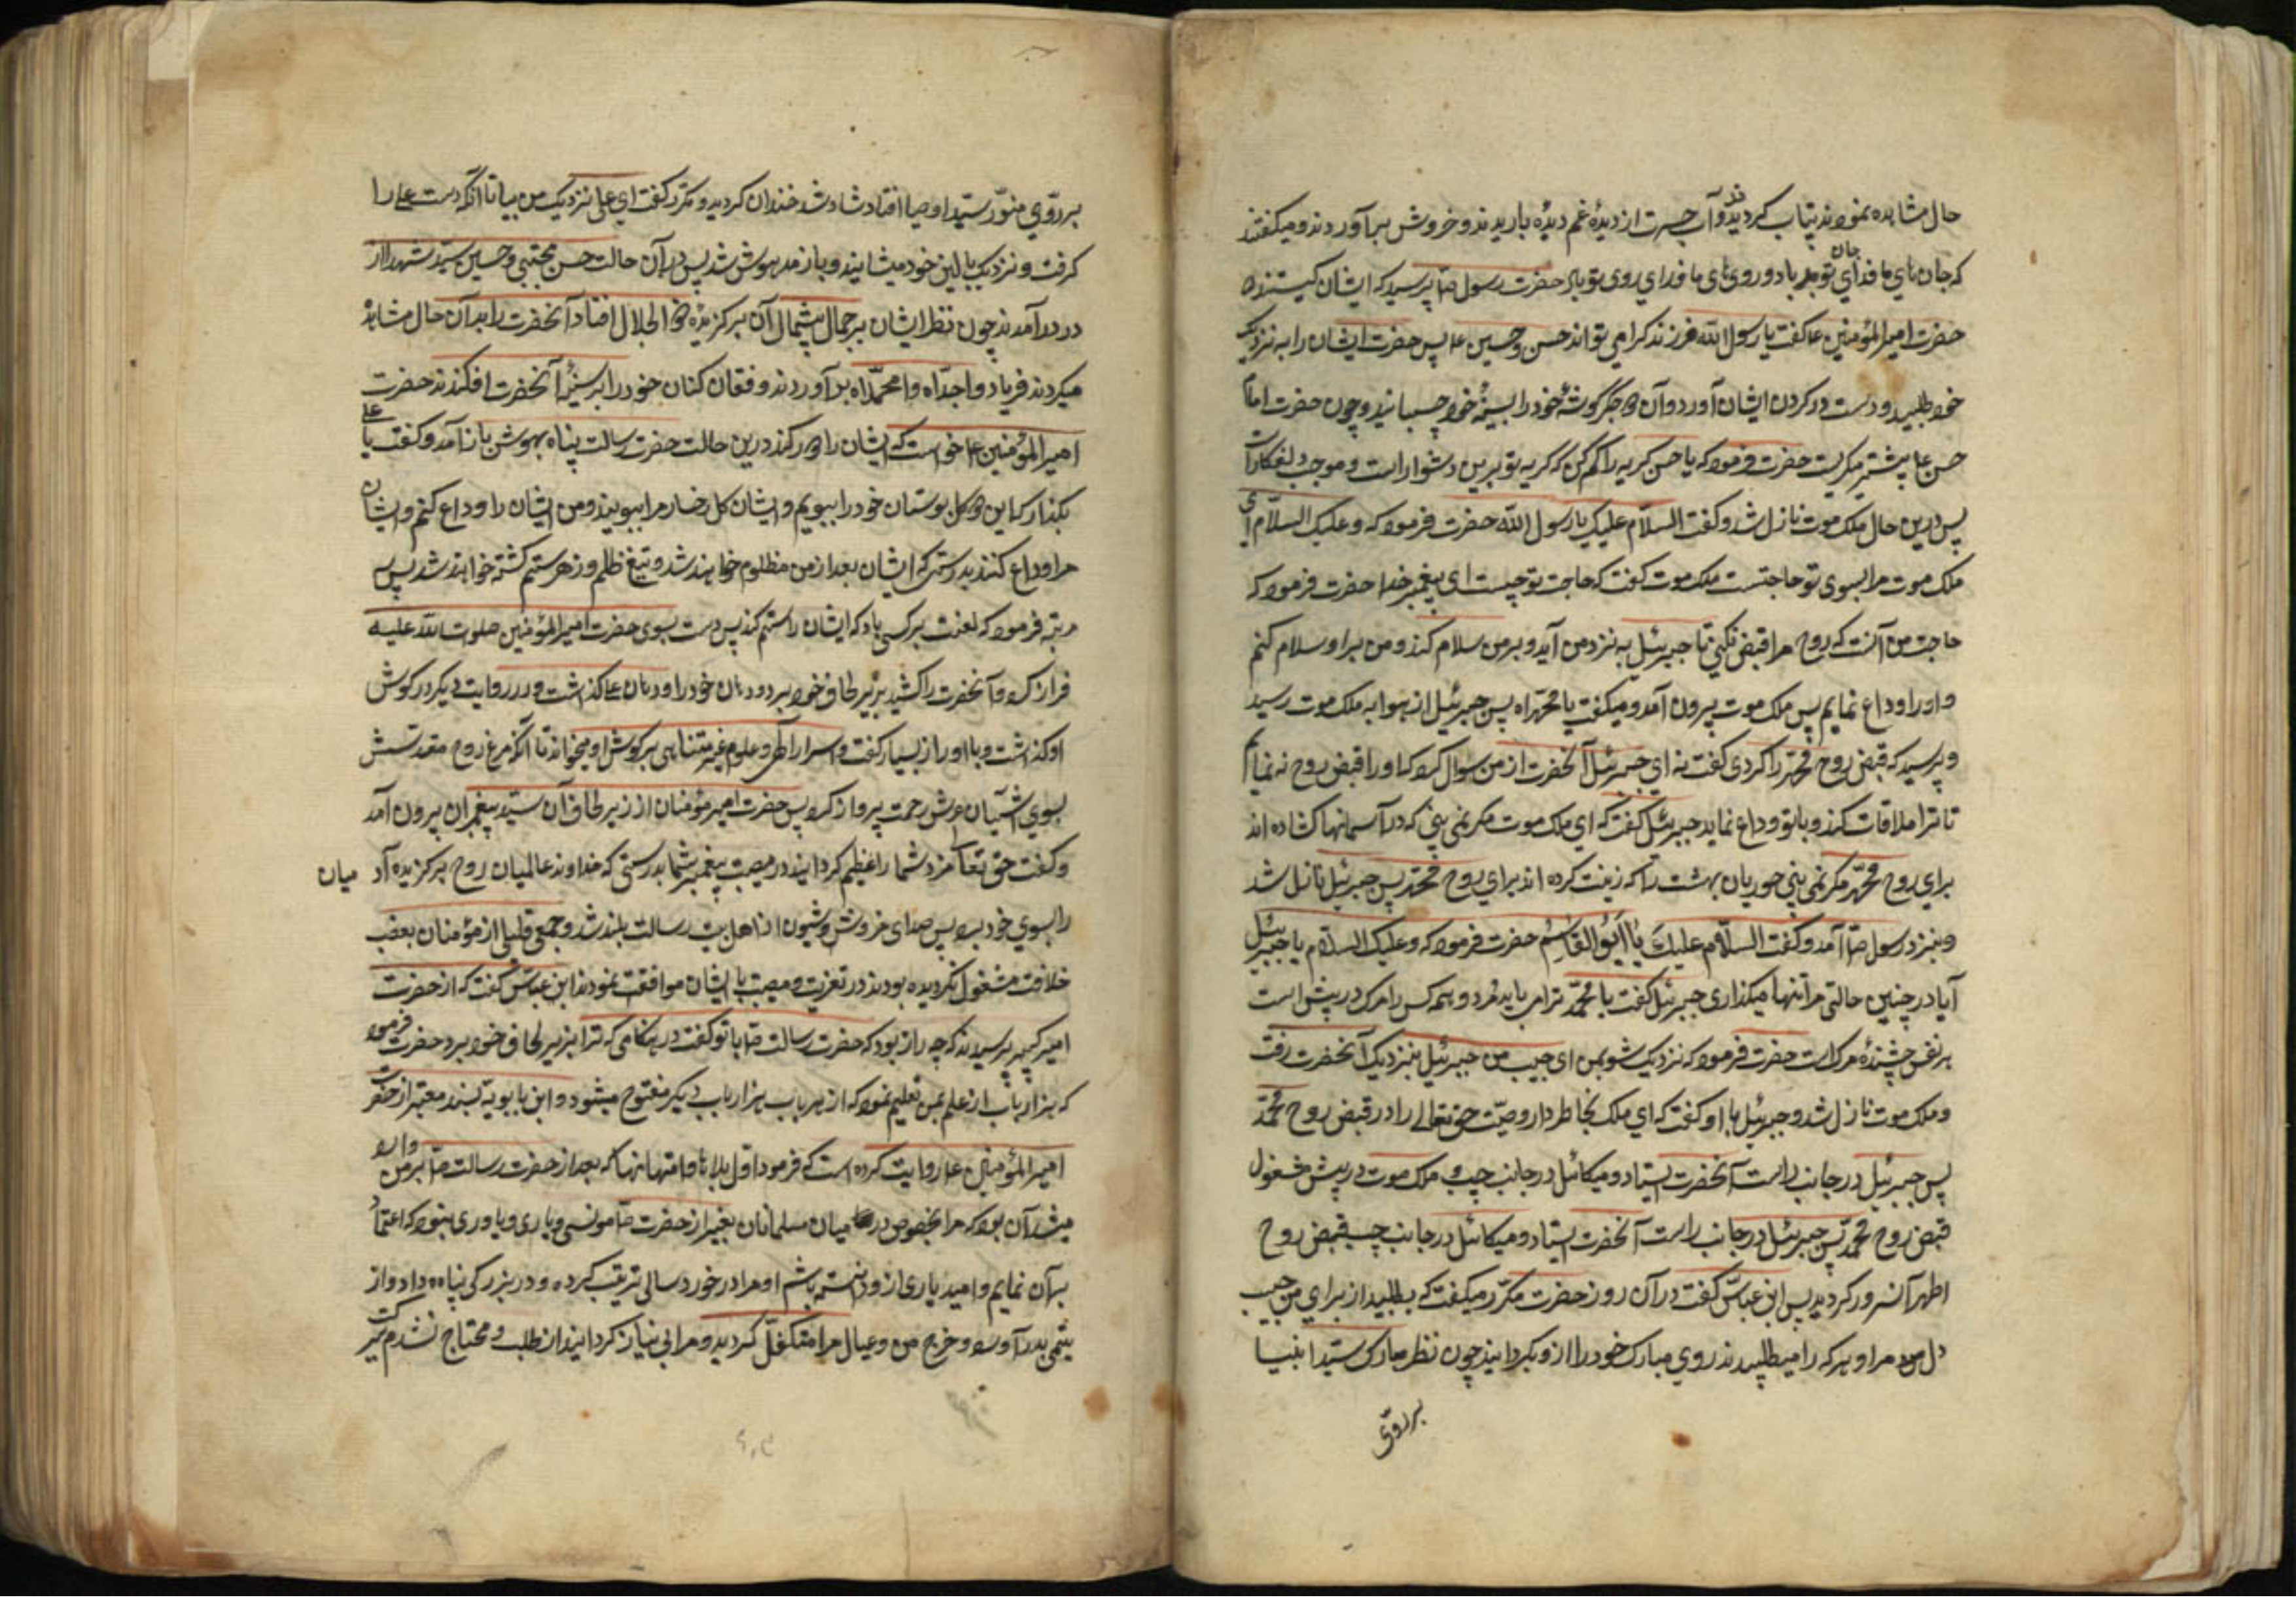 حال مشاهده نمودند بیتاب کردیدند و آب حسرت از دیدهٔ غم دیدهٔ باریدند و خروش برآوردند و میکفتند
که جان‌های ما فدای جان تو باد و روی‌های ما فدای روی تو باد حضرت رسول ص پرسید که ایشان کیستند
حضرت امیرالمؤمنین ع کفت یا رسول الله فرزند کرامی تو اند حسن و حسین ع پس حضرت ایشان را به نزدیک
خود طلبید و دست در کردن ایشان آورد و آن دو جکر کوشهٔ خود را بسینهٔ خود چسبانید و چون حضرت امام
حسن ع بیشتر میکریست حضرت فرمود که یا حسن کریه را کم کن که کریه تو بر من دشوار است و موجب دلفکاریست
پس درین حال ملک موت نازل شد و کفت السلام علیک یا رسول الله حضرت فرمود که و علیک السلام ای
ملک موت مرا بسوی تو حاجتست ملک موت کفت که حاجت تو چیست ای پیغمبر خدا حضرت فرمود که
حاجت من آنست که روح مرا قبض نکنی تا جبرئیل به نزد من آید و بر من سلام کند و من بر او سلام کنم
و او را وداع نمایم پس ملک موت بیرون آمد و میکفت یا محمداه پس جبرئیل از هوا به ملک موت رسید
و پرسید که قبض روح محمد را کردی کفت نه ای جبرئیل آنحضرت از من سوال کرد که او را قبض روح نه نمایم
تا ترا ملاقات کند و با تو وداع نماید جبرئیل کفت که ای ملک موت مکر نمی بینی که در آسمانها کشاده اند
برای روح محمد مکر نمی بینی حوریان بهشت را که زینت کرده اند برای روح محمد پس جبرئیل نازل شد
و بنزد رسول ص آمد و کفت السلام علیك یا ابو القاسم حضرت فرمود که و علیک السلام یا جبرئیل
آیا در چنین حالتی مرا تنها میکذاری جبرئیل کفت یا محمد ترا می باید مرد و همه کس را مرک در پیش است
هر نفس چشندهٔ مرک است حضرت فرمود که نزدیک شو بمن ای حبیب من جبرئیل بنزدیک آنحضرت رفت
و ملک موت نازل شد و جبرئیل با او کفت که ای ملک بخاطر دار وصیت حق تعالی را در قبض روح محمد
پس جبرئیل در جانب راست آنحضرت ایستاد و میکائیل در جانب چپ و ملک موت در پیش مشغول
قبض روح محمد پس جبرئیل در جانب راست آنحضرت ایستاد و میکائیل در جانب چپ قبض روح
اطهر آنسرور کردید پس ابن عباس کفت در آن روز حضرت مکرر میکفت که بطلبید از برای من حبیب
دل من مرا و هر که را میطلبیدند روی مبارک خود را از و بکردانید چون نظر مبارک سید انبیا
بر روی
بر روی منور سید اوصیا افتاد شاد شد خندان کردید و مکرر کفت ای علی نزدیک من بیا تا آنکه دست علی را
کرفت و نزدیک بالین خود نشانید و باز مدهوش شد پس در آن حالت حسن مجتبی و حسین سید شهدا از
در درآمدند چون نظر ایشان بر جمال بیمثال آن برکزیدهٔ ذو الجلال افتاد آنحضرت را بدآن حال مشاهد
میکردند فریاد وا جداه وا محمداه برآوردند و فغان کنان خود را بر سینهٔ آنحضرت افکندند حضرت
امیرالمؤمنین ع خواست که ایشان را دور کند درین حالت حضرت رسالت پناه بهوش باز آمد و کفت یا علی
بکذار که این دو کل بوستان خود را ببویم و ایشان کل رخسار مرا ببویند و من ایشان را وداع کنم و ایشان
مرا وداع کنند بدرستی که ایشان بعد از من مظلوم خواهند شد و بتیغ ظلم و زهر ستم کشته خواهند شد پس سه
مرتبه فرمود که لعنت بر کسی باد که ایشان را ستم کند پس دست بسوی حضرت امیرالمؤمنین صلوت الله علیه
فراز کرد و آنحضرت را کشید بزیر لحاف خود برد و دهان خود را بر دهان ع کذاشت و در روایت دیکر در کوش
او کذاشت و با او راز بسیار کفت و اسرار الهی و علوم غیر متناهی بر کوش او میخواند تا آنکه مرغ روح مقدسش
بسوی آشیان عرش رحمت پرواز کرد پس حضرت امیر مؤمنان از زیر لحاف آن سید پیغمبران بیرون آمد
و کفت حق تعالی مزد شما را عظیم کرداند در مصیبت پیغمبر شما بدرستی که خداوند عالمیان روح برکزیده آد میان
را بسوی خود برد پس صدای خروش و شیون از اهل بیت رسالت بلند شد و جمعی قلیلی از مؤمنان بغصب
خلافت مشغول نکردیده بودند در تعزیت و مصیبت با ایشان موافقت نمودند ابن عباس کفت که از حضرت
امیر کبیر پرسیدند که چه راز بود که حضرت رسالت ص با تو کفت در هنکامی که ترا بزیر لحاف خود برد حضرت فرمود
که هزار باب از علم بمن تعلیم نمود که از هر باب هزار باب دیکر مفتوح میشود و ابن بابویه بسند معتبر از حضرت
امیرالمؤمنین ع روایت کرده است که فرمود اول بلاها و امتحانها که بعد از حضرت رسالت ص بر من وارد
میشد آن بود که مرا بخصوص در میان مسلمانان بغیر از حضرت ص مونسی و یاری و یاوری نبود که اعتماد
بر آن نمایم و امید یاری از و داشته باشم او مرا در خورد سالی تربیت کرده و در بزرکی پناه داد و از
یتیمی بدر آورد و خرج من و عیال مرا متکفل کردید و مرا بی نیاز کردانید از طلب و محتاج نشدم